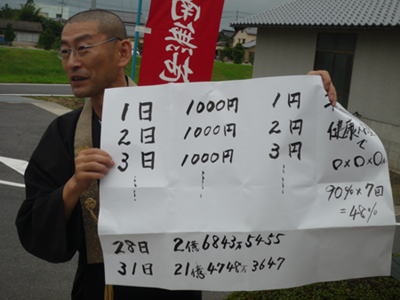 南無
1日 1000円 1円
2日 1000円 2円
3日 1000円 3円
健康
で
0×0×0
90%×7回
=48%
28日 2億6843万5455
31日 21億4748万3647